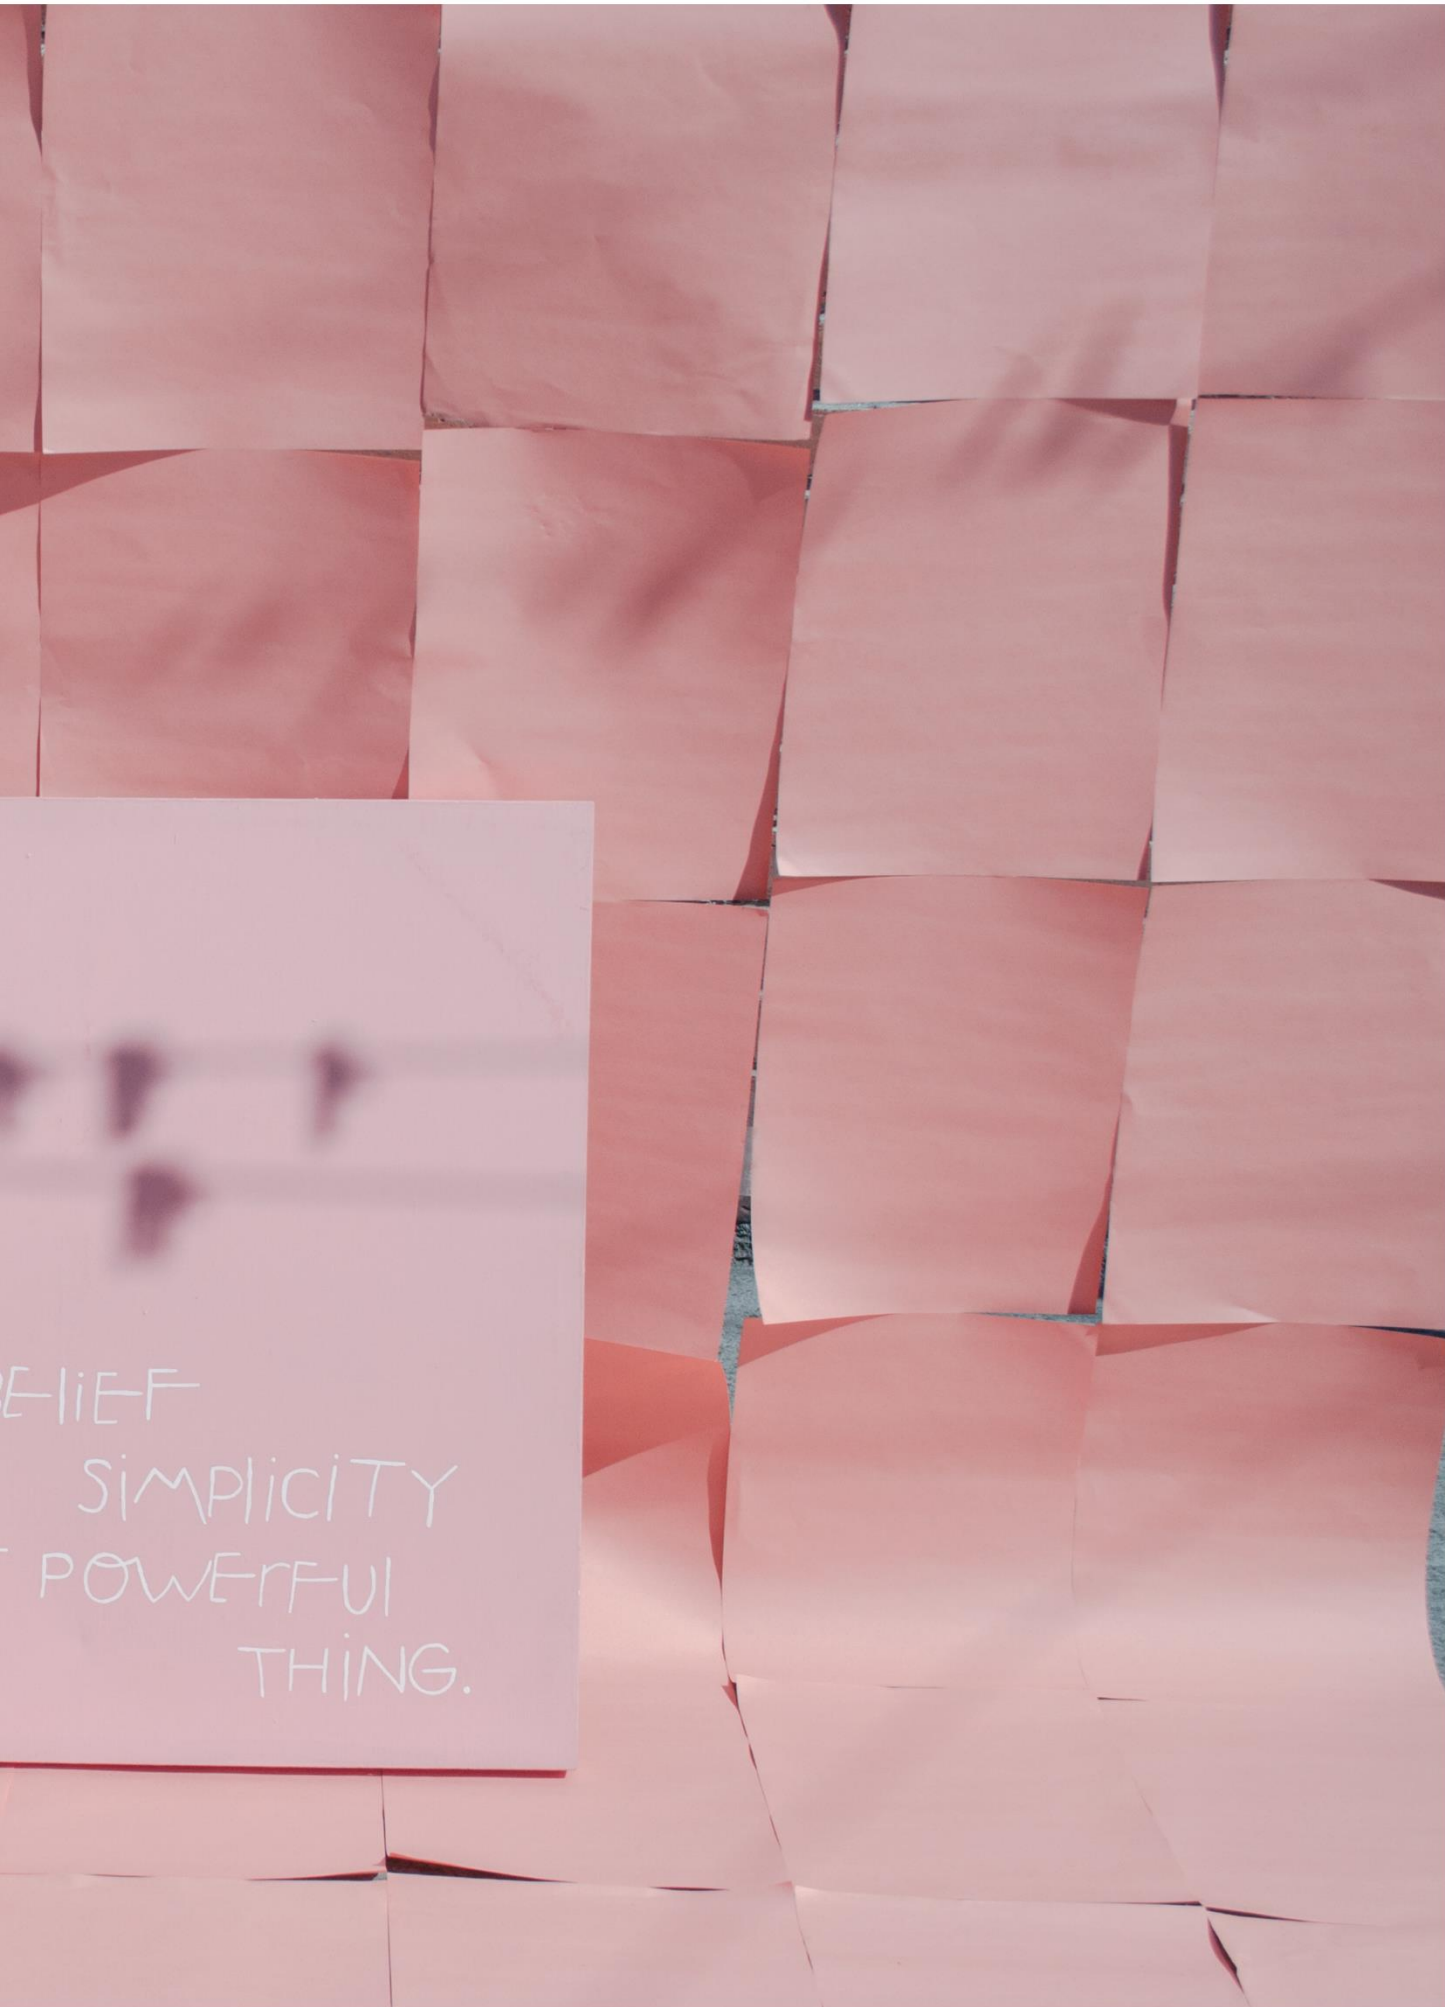 BELIEF
SIMPLICITY
POWERFUL
THING.